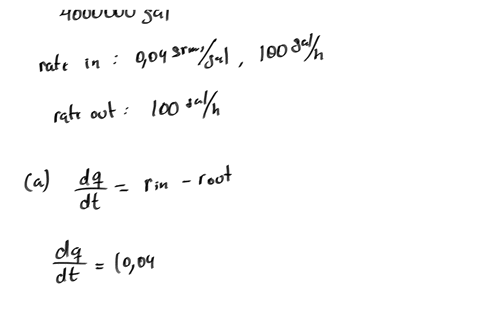 4000000 gal
rate in : 0,04 grm/gal , 100 gal/h
rate out : 100 gal/h
(a) dq/dt = rin - rout
dq/dt = (0,04